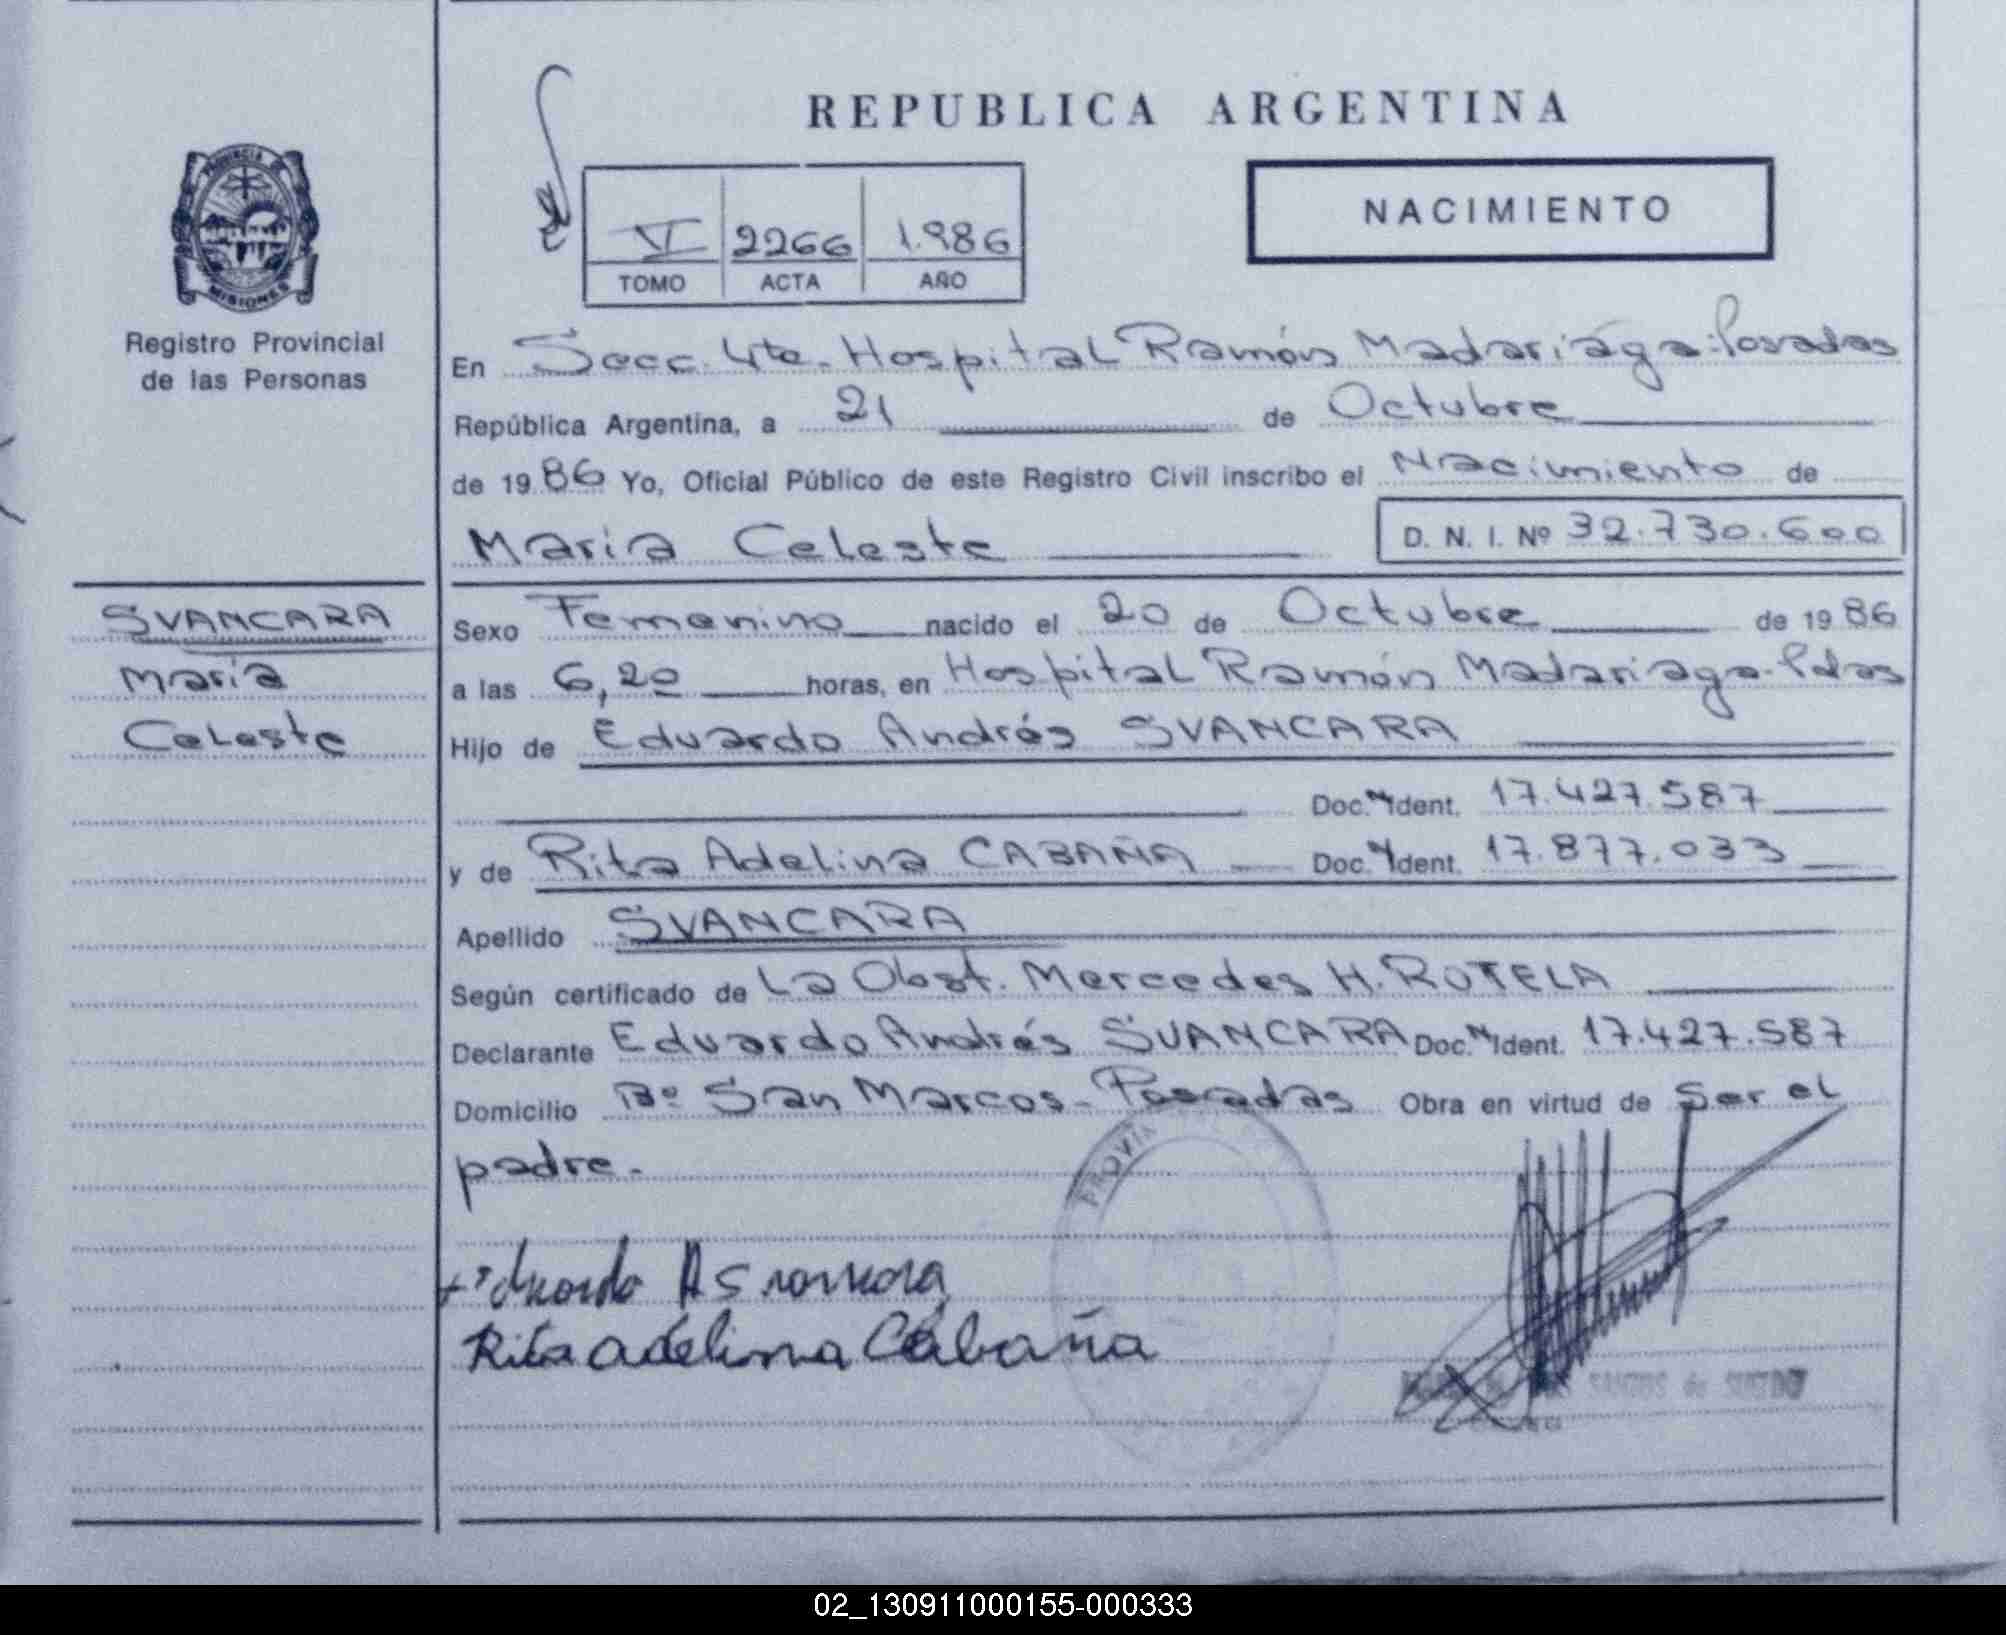 REPUBLICA ARGENTINA
NACIMIENTO
VI 2266 1.986
TOMO ACTA AÑO
PROVINCIA DE
MISIONES
Registro Provincial
de las Personas
En Secc. 4ta. Hospital Ramón Madariaga-Posadas
República Argentina, a 21 de Octubre
de 1986 Yo, Oficial Público de este Registro Civil inscribo el Nacimiento de
Maria Celeste D. N. I. Nº 32.730.600
SVANCARA
María
Celeste
Sexo Femenino nacido el 20 de Octubre de 1986
a las 6,20 horas, en Hospital Ramón Madariaga-Pdas
Hijo de Eduardo Andrés SVANCARA
Doc. N Ident. 17.427.587
y de Rita Adelina CABAÑA Doc. N Ident. 17.877.033
Apellido SVANCARA
Según certificado de La Obst. Mercedes H. ROTELA
Declarante Eduardo Andrés SVANCARA Doc. N Ident. 17.427.587
Domicilio Bº San Marcos-Posadas Obra en virtud de Ser el
padre.
Rita adelina Cabaña
SANTOS de
02_130911000155-000333